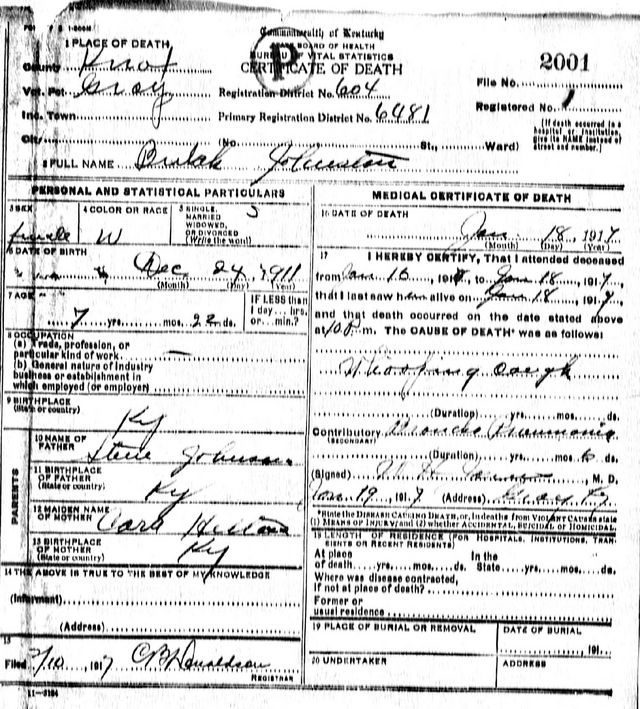 Commonwealth of Kentucky
STATE BOARD OF HEALTH
BUREAU OF VITAL STATISTICS
CERTIFICATE OF DEATH
P
2001
1 PLACE OF DEATH
County Knox
Vot. Pct. Gray
Inc. Town
City
Registration District No. 604
Primary Registration District No. 6481
(No. St., Ward)
File No.
Registered No. 1
[If death occurred in a hospital or institution, give its NAME instead of street and number.]
2 FULL NAME Beulah Johnston
PERSONAL AND STATISTICAL PARTICULARS
3 SEX female
4 COLOR OR RACE W
5 SINGLE, MARRIED WIDOWED, OR DIVORCED (Write the word) S
6 DATE OF BIRTH
Dec 24, 1911
(Month) (Day) (Year)
7 AGE
7 yrs. mos. 22 ds.
IF LESS than 1 day hrs. or min.?
8 OCCUPATION
(a) Trade, profession, or
particular kind of work —
(b) General nature of industry
business or establishment in
which employed (or employer)
9 BIRTHPLACE
(State or country) Ky
PARENTS
10 NAME OF FATHER Steve Johnson
11 BIRTHPLACE OF FATHER
(State or country) Ky
12 MAIDEN NAME OF MOTHER
13 BIRTHPLACE OF MOTHER
(State or country) Ky
14 THE ABOVE IS TRUE TO THE BEST OF MY KNOWLEDGE
(Informant)
(Address)
15
Filed 2/10, 1917 C B Donaldson
REGISTRAR
11—3184
MEDICAL CERTIFICATE OF DEATH
16 DATE OF DEATH
Jan. 18, 1917
(Month) (Day) (Year)
17 I HEREBY CERTIFY, That I attended deceased
from Jan 16, 1917, to Jan 18, 1917,
that I last saw h alive on Jan 18, 1917,
and that death occurred on the date stated above
at 10 P.m. The CAUSE OF DEATH* was as follows:
Whooping cough
(Duration) yrs. mos. ds.
Contributory Broncho Pneumonia
(SECONDARY)
(Duration) yrs. mos. 6 ds.
(Signed) W H, M.D.
Jan. 19, 1917 (Address) Gray Ky.
*State the DISEASE CAUSING DEATH, or, in deaths from VIOLENT CAUSES state
(1) MEANS OF INJURY; and (2) whether ACCIDENTAL, SUICIDAL or HOMICIDAL.
18 LENGTH OF RESIDENCE (FOR HOSPITALS, INSTITUTIONS, TRANSIENTS OR RECENT RESIDENTS)
At place of death yrs. mos. ds. In the State yrs. mos. ds.
Where was disease contracted,
If not at place of death?
Former or
usual residence
19 PLACE OF BURIAL OR REMOVAL
DATE OF BURIAL
, 191
20 UNDERTAKER
ADDRESS